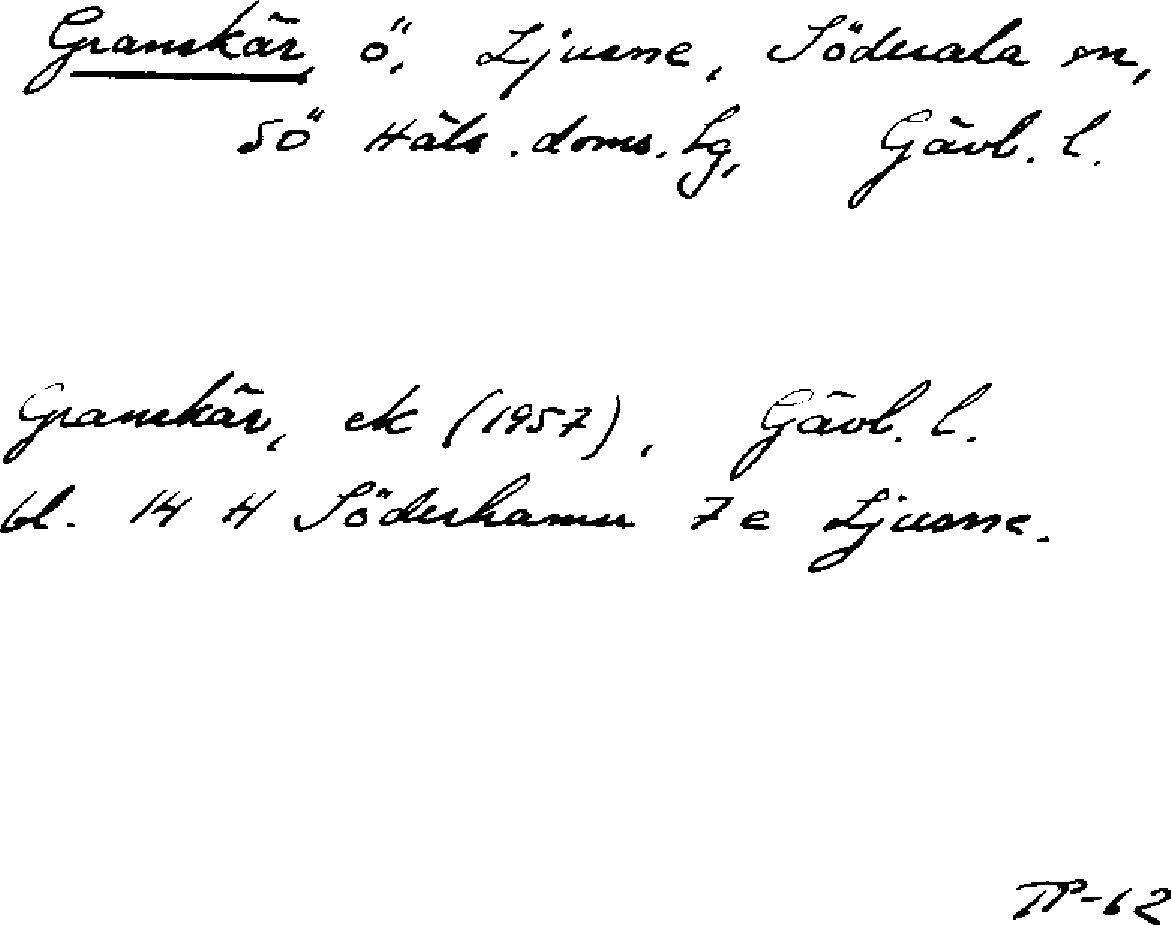 Granskär, ö, Ljusne, Söderala sn,
SÖ Häls. doms. lg, Gävl. l.
Granskär, ek (1957), Gävl. l.
bl. 14 H Söderhamn 7e Ljusne.
TP-62